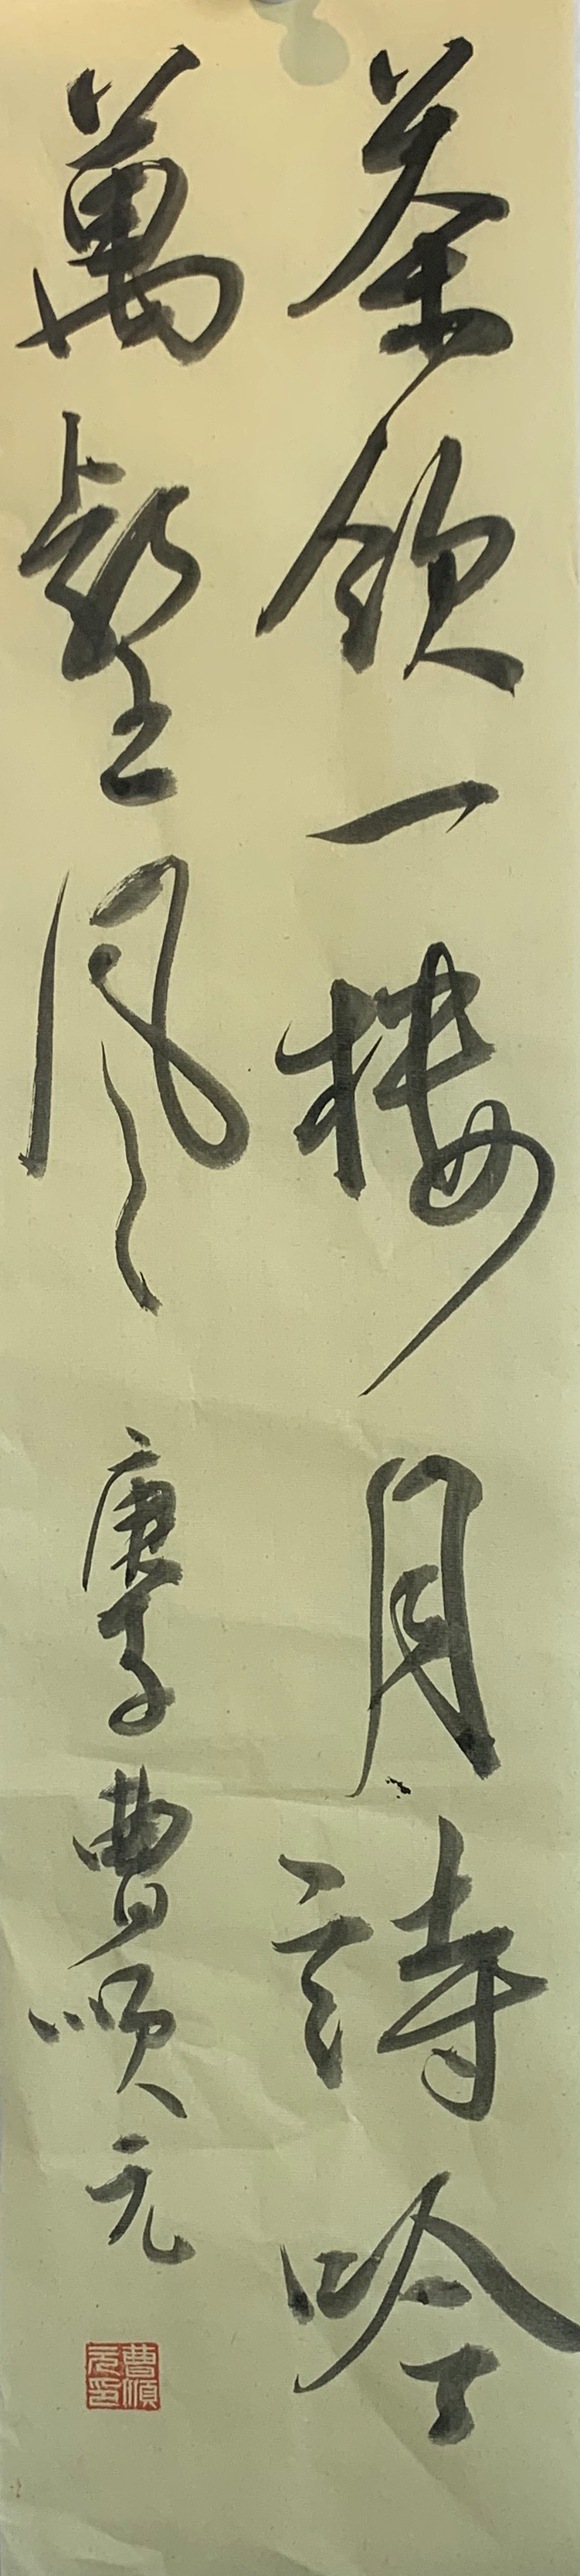 茶飲一樓月詩吟
萬壑風
庚子曹順元
曹順元印